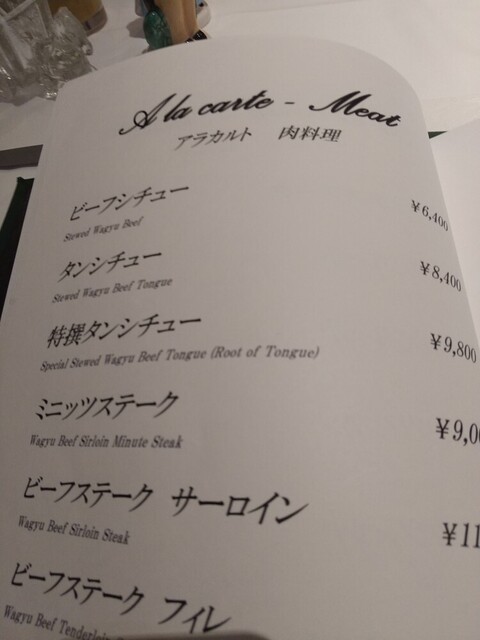 A la carte - Meat
アラカルト 肉料理
ビーフシチュー ¥6,400
Stewed Wagyu Beef
タンシチュー ¥8,400
Stewed Wagyu Beef Tongue
特撰タンシチュー ¥9,800
Special Stewed Wagyu Beef Tongue (Root of Tongue)
ミニッツステーク ¥9,00
Wagyu Beef Sirloin Minute Steak
ビーフステーク サーロイン ¥11
Wagyu Beef Sirloin Steak
ビーフステーク フィレ
Wagyu Beef Tenderloin